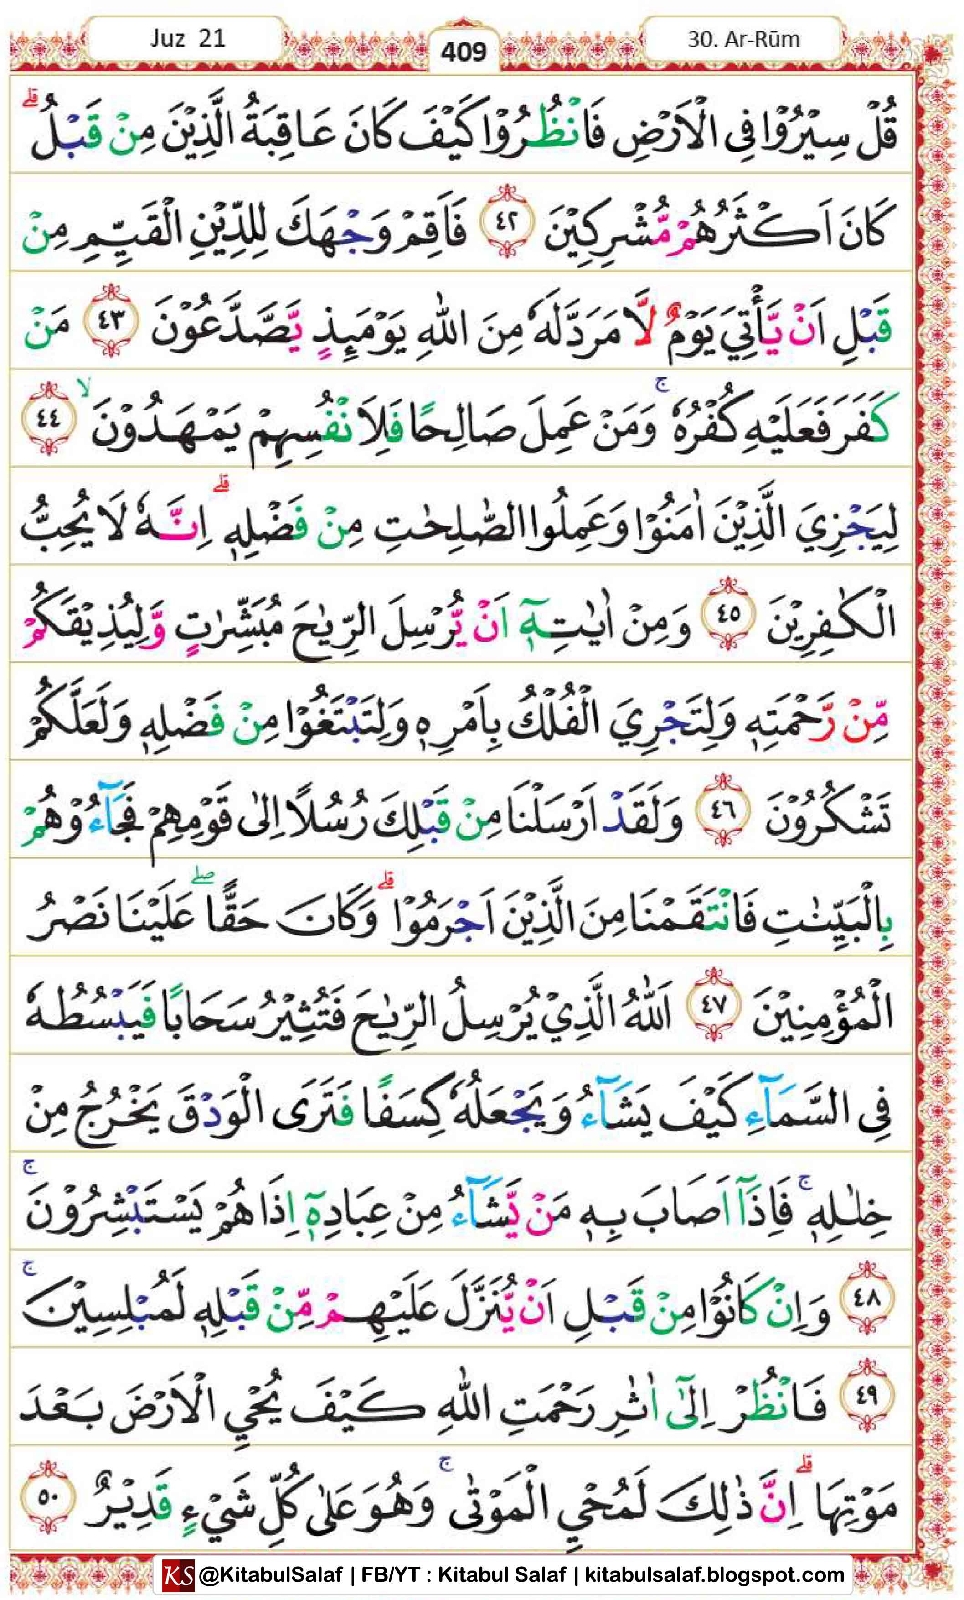 Juz 21
409
30. Ar-Rūm
قُلْ سِيْرُوْا فِى الْاَرْضِ فَانْظُرُوْا كَيْفَ كَانَ عَاقِبَةُ الَّذِيْنَ مِنْ قَبْلُ ۗ
كَانَ اَكْثَرُهُمْ مُّشْرِكِيْنَ ٤٢ فَاَقِمْ وَجْهَكَ لِلدِّيْنِ الْقَيِّمِ مِنْ
قَبْلِ اَنْ يَّأْتِيَ يَوْمٌ لَّا مَرَدَّ لَهٗ مِنَ اللّٰهِ يَوْمَىِٕذٍ يَّصَّدَّعُوْنَ ٤٣ مَنْ
كَفَرَ فَعَلَيْهِ كُفْرُهٗ ۚ وَمَنْ عَمِلَ صَالِحًا فَلِاَنْفُسِهِمْ يَمْهَدُوْنَ ۙ ٤٤
لِيَجْزِيَ الَّذِيْنَ اٰمَنُوْا وَعَمِلُوا الصّٰلِحٰتِ مِنْ فَضْلِهٖ ۗ اِنَّهٗ لَا يُحِبُّ
الْكٰفِرِيْنَ ٤٥ وَمِنْ اٰيٰتِهٖٓ اَنْ يُّرْسِلَ الرِّيٰحَ مُبَشِّرٰتٍ وَّلِيُذِيْقَكُمْ
مِّنْ رَّحْمَتِهٖ وَلِتَجْرِيَ الْفُلْكُ بِاَمْرِهٖ وَلِتَبْتَغُوْا مِنْ فَضْلِهٖ وَلَعَلَّكُمْ
تَشْكُرُوْنَ ٤٦ وَلَقَدْ اَرْسَلْنَا مِنْ قَبْلِكَ رُسُلًا اِلٰى قَوْمِهِمْ فَجَاۤءُوْهُمْ
بِالْبَيِّنٰتِ فَانْتَقَمْنَا مِنَ الَّذِيْنَ اَجْرَمُوْا ۗ وَكَانَ حَقًّا ۖ عَلَيْنَا نَصْرُ
الْمُؤْمِنِيْنَ ٤٧ اَللّٰهُ الَّذِيْ يُرْسِلُ الرِّيٰحَ فَتُثِيْرُ سَحَابًا فَيَبْسُطُهٗ
فِى السَّمَاۤءِ كَيْفَ يَشَاۤءُ وَيَجْعَلُهٗ كِسَفًا فَتَرَى الْوَدْقَ يَخْرُجُ مِنْ
خِلٰلِهٖ ۚ فَاِذَآ اَصَابَ بِهٖ مَنْ يَّشَاۤءُ مِنْ عِبَادِهٖٓ اِذَا هُمْ يَسْتَبْشِرُوْنَ ۚ
٤٨ وَاِنْ كَانُوْا مِنْ قَبْلِ اَنْ يُّنَزَّلَ عَلَيْهِمْ مِّنْ قَبْلِهٖ لَمُبْلِسِيْنَ ۚ
٤٩ فَانْظُرْ اِلٰٓى اٰثٰرِ رَحْمَتِ اللّٰهِ كَيْفَ يُحْيِ الْاَرْضَ بَعْدَ
مَوْتِهَا ۗ اِنَّ ذٰلِكَ لَمُحْيِ الْمَوْتٰى ۚ وَهُوَ عَلٰى كُلِّ شَيْءٍ قَدِيْرٌ ٥٠
KS @KitabulSalaf | FB/YT : Kitabul Salaf | kitabulsalaf.blogspot.com